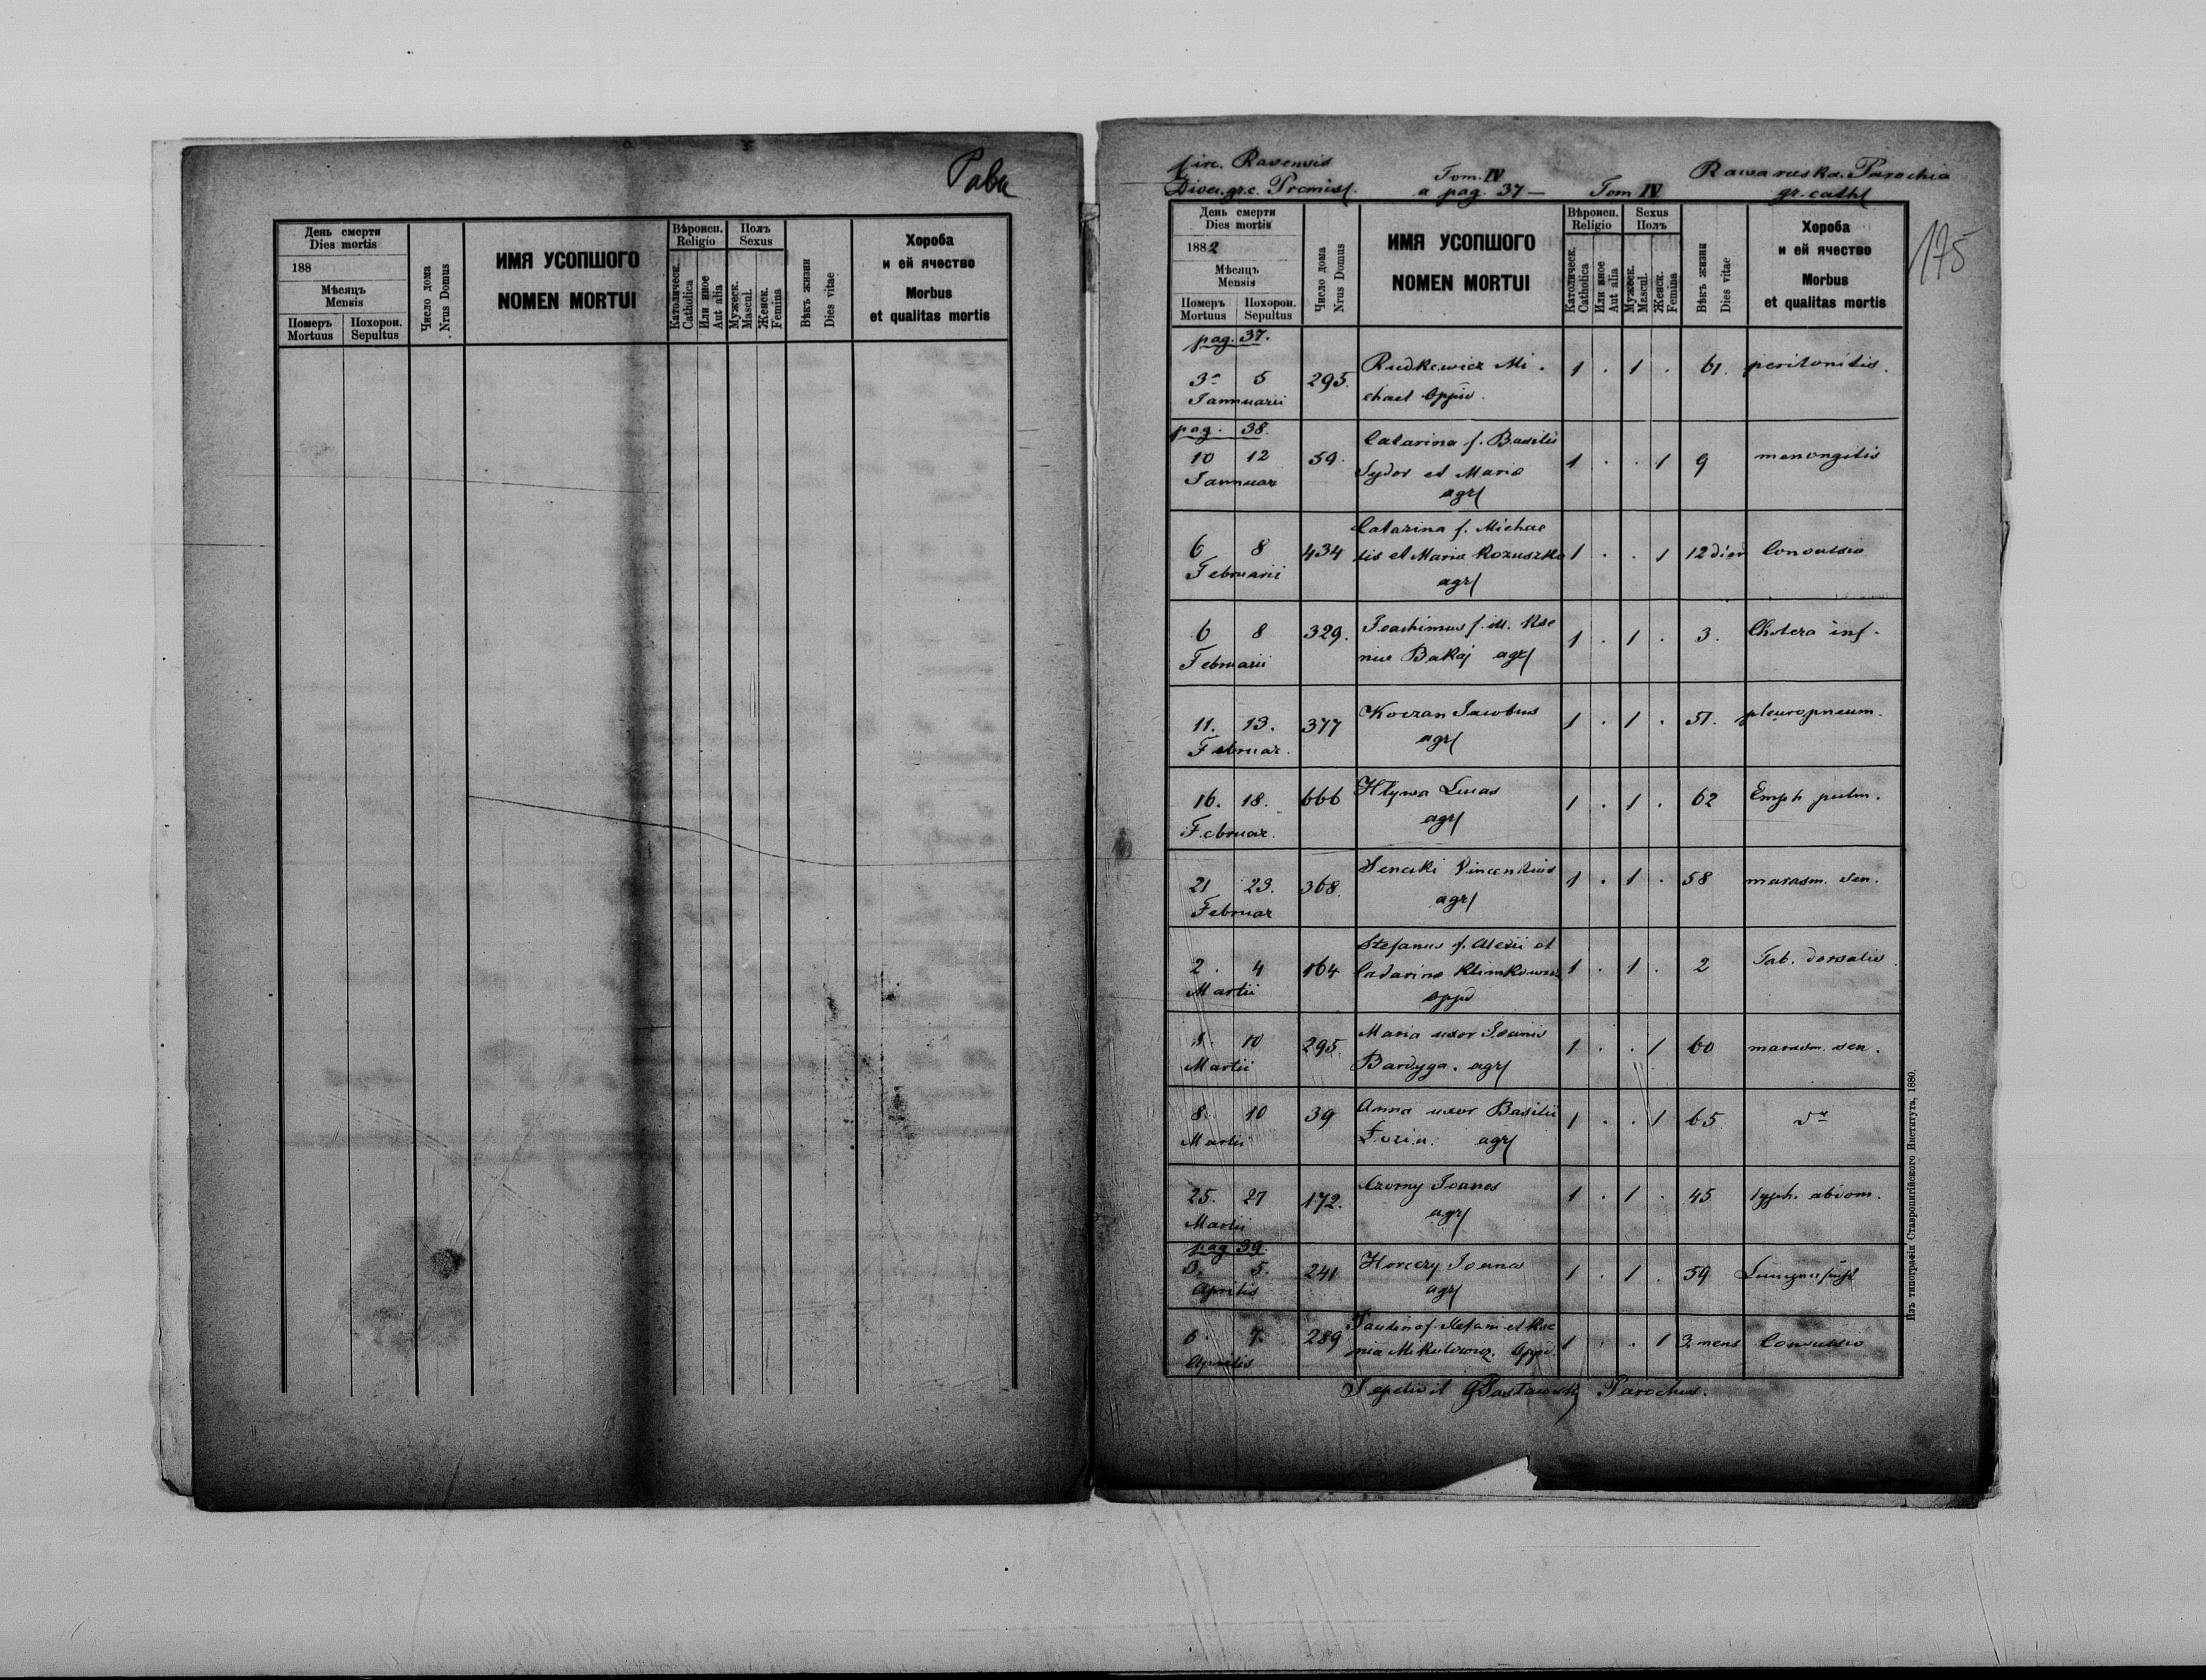 Рава
День смерти
Dies mortis
188
Мѣсяцъ
Mensis
Померъ
Mortuus
Похорон.
Sepultus
Число дома
Nrus Domus
ИМЯ УСОПШОГО
NOMEN MORTUI
Вѣроисп.
Religio
Католическ.
Catholica
Или иное
Aut alia
Полъ
Sexus
Мужеск.
Mascul.
Женск.
Femina
Вѣкъ жизни
Dies vitae
Хороба
и ей ячество
Morbus
et qualitas mortis
Circ. Ravensis
Dioec. gr. c. Premisl.
Tom. IV
a pag. 37 —
Tom IV
Rawa ruska. Parochia
gr. cath.
175
День смерти
Dies mortis
1882
Мѣсяцъ
Mensis
Померъ
Mortuus
Похорон.
Sepultus
Число дома
Nrus Domus
ИМЯ УСОПШОГО
NOMEN MORTUI
Вѣроисп.
Religio
Католическ.
Catholica
Или иное
Aut alia
Sexus
Полъ
Мужеск.
Mascul.
Женск.
Femina
Вѣкъ жизни
Dies vitae
Хороба
и ей ячество
Morbus
et qualitas mortis
pag. 37.
3 5 295. Rudkewicz Mi- 1 . 1 . 61. peritonitis.
Iannuarii chael oppid.
pag. 38.
10 12 59. Catarina f. Basilii 1 . . 1 9 menongitis
Iannuar Sydor et Maria
agr.
6 8 434 Catarina f. Michae 1 . . 1 12 dier Convulsio
Februarii lis et Maria Kozuszko
agr.
6 8 329. Ioachimus f. ill. Kse 1 . 1 . 3. Cholera inf.
Februarii nie Bakaj agr.
11. 13. 377 Koczan Iacobus 1 . 1 . 51. pleuropneum.
Februar. agr.
16. 18. 666 Hlywa Lucas 1 . 1 . 62 Emph pulm.
Februar. agr.
21 23. 368. Sencski Vincentius 1 . 1 . 58 marasm. sen.
Februar agr.
2. 4 164 Stefanus f. Alexii et 1 . 1 . 2 Tab. dorsalis
Martii Catarina
oppid
10 295. Maria uxor Ioanis 1 . . 1 60 marasm. sen.
Martii Bardyga. agr.
8. 10 39 Anna uxor Basilii 1 . . 1 65
Martii agr.
25. 27 172. Czorny Ioanes 1 . 1 . 45 typh. abdom.
Martii agr.
pag 39.
3. 5. 241 Horeczy Ioanes 1 . 1 . 59
Aprilis agr.
6. 7. 289 Paulina f. Stefani et Kse 1 . . 1 3 mens Convulsio
Aprilis nia oppid.
Sepelivit Parochus.
Изъ типографіи Ставропигійского Института, 1880.